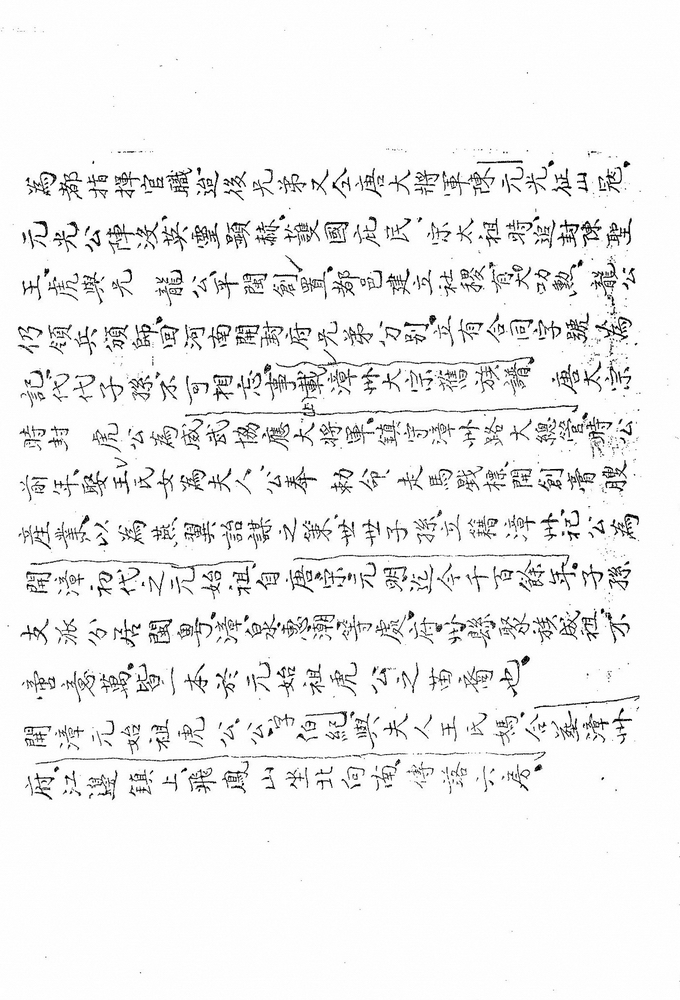 為都指揮官職迨後兄弟又仝唐大將軍陳元光征山冦
元光公陣沒英靈顯赫護國庇民宗太祖時追封陳聖
王虎與光龍公平閩創置都邑建立社稷有大功勲龍公
仍領兵頒師回河南開封府兄弟分別立有合同字號為
記代代子孫不可相忘事載漳州大宗舊族譜唐太宗
時封虎公為威武協應大將軍鎮守漳州路大總管時公
前年娶王氏女為夫人公奉勅命走馬戰標開創膏腴
產業以為燕翼詒謀之策世世子孫立籍漳州祀公為
開漳初代之元始祖自唐宋元明迄今千百餘年子孫
支派分居閩粵漳泉惠潮等處府州縣聚族成祖不
啻意萬皆一本於元始祖虎公之苗裔也
開漳元始祖虎公公字伯紀與夫人王氏媽合葬漳州
府江邊鎮上飛鳳山坐北向南傳落六房